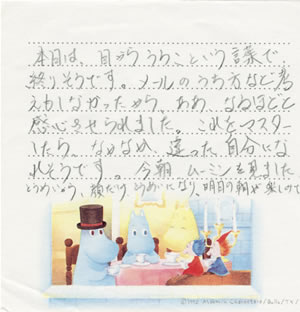 本日は、目からうろこという言葉で
終りそうです。メールのうち方など考
えもしなかったから、ああ なるほどと
感心させられました。これをマスター
したら、なかなか 違った自分にな
れそうです。今朝 ムーミンを見ました
顔だけ とうめいになり、明日の朝が楽しみで